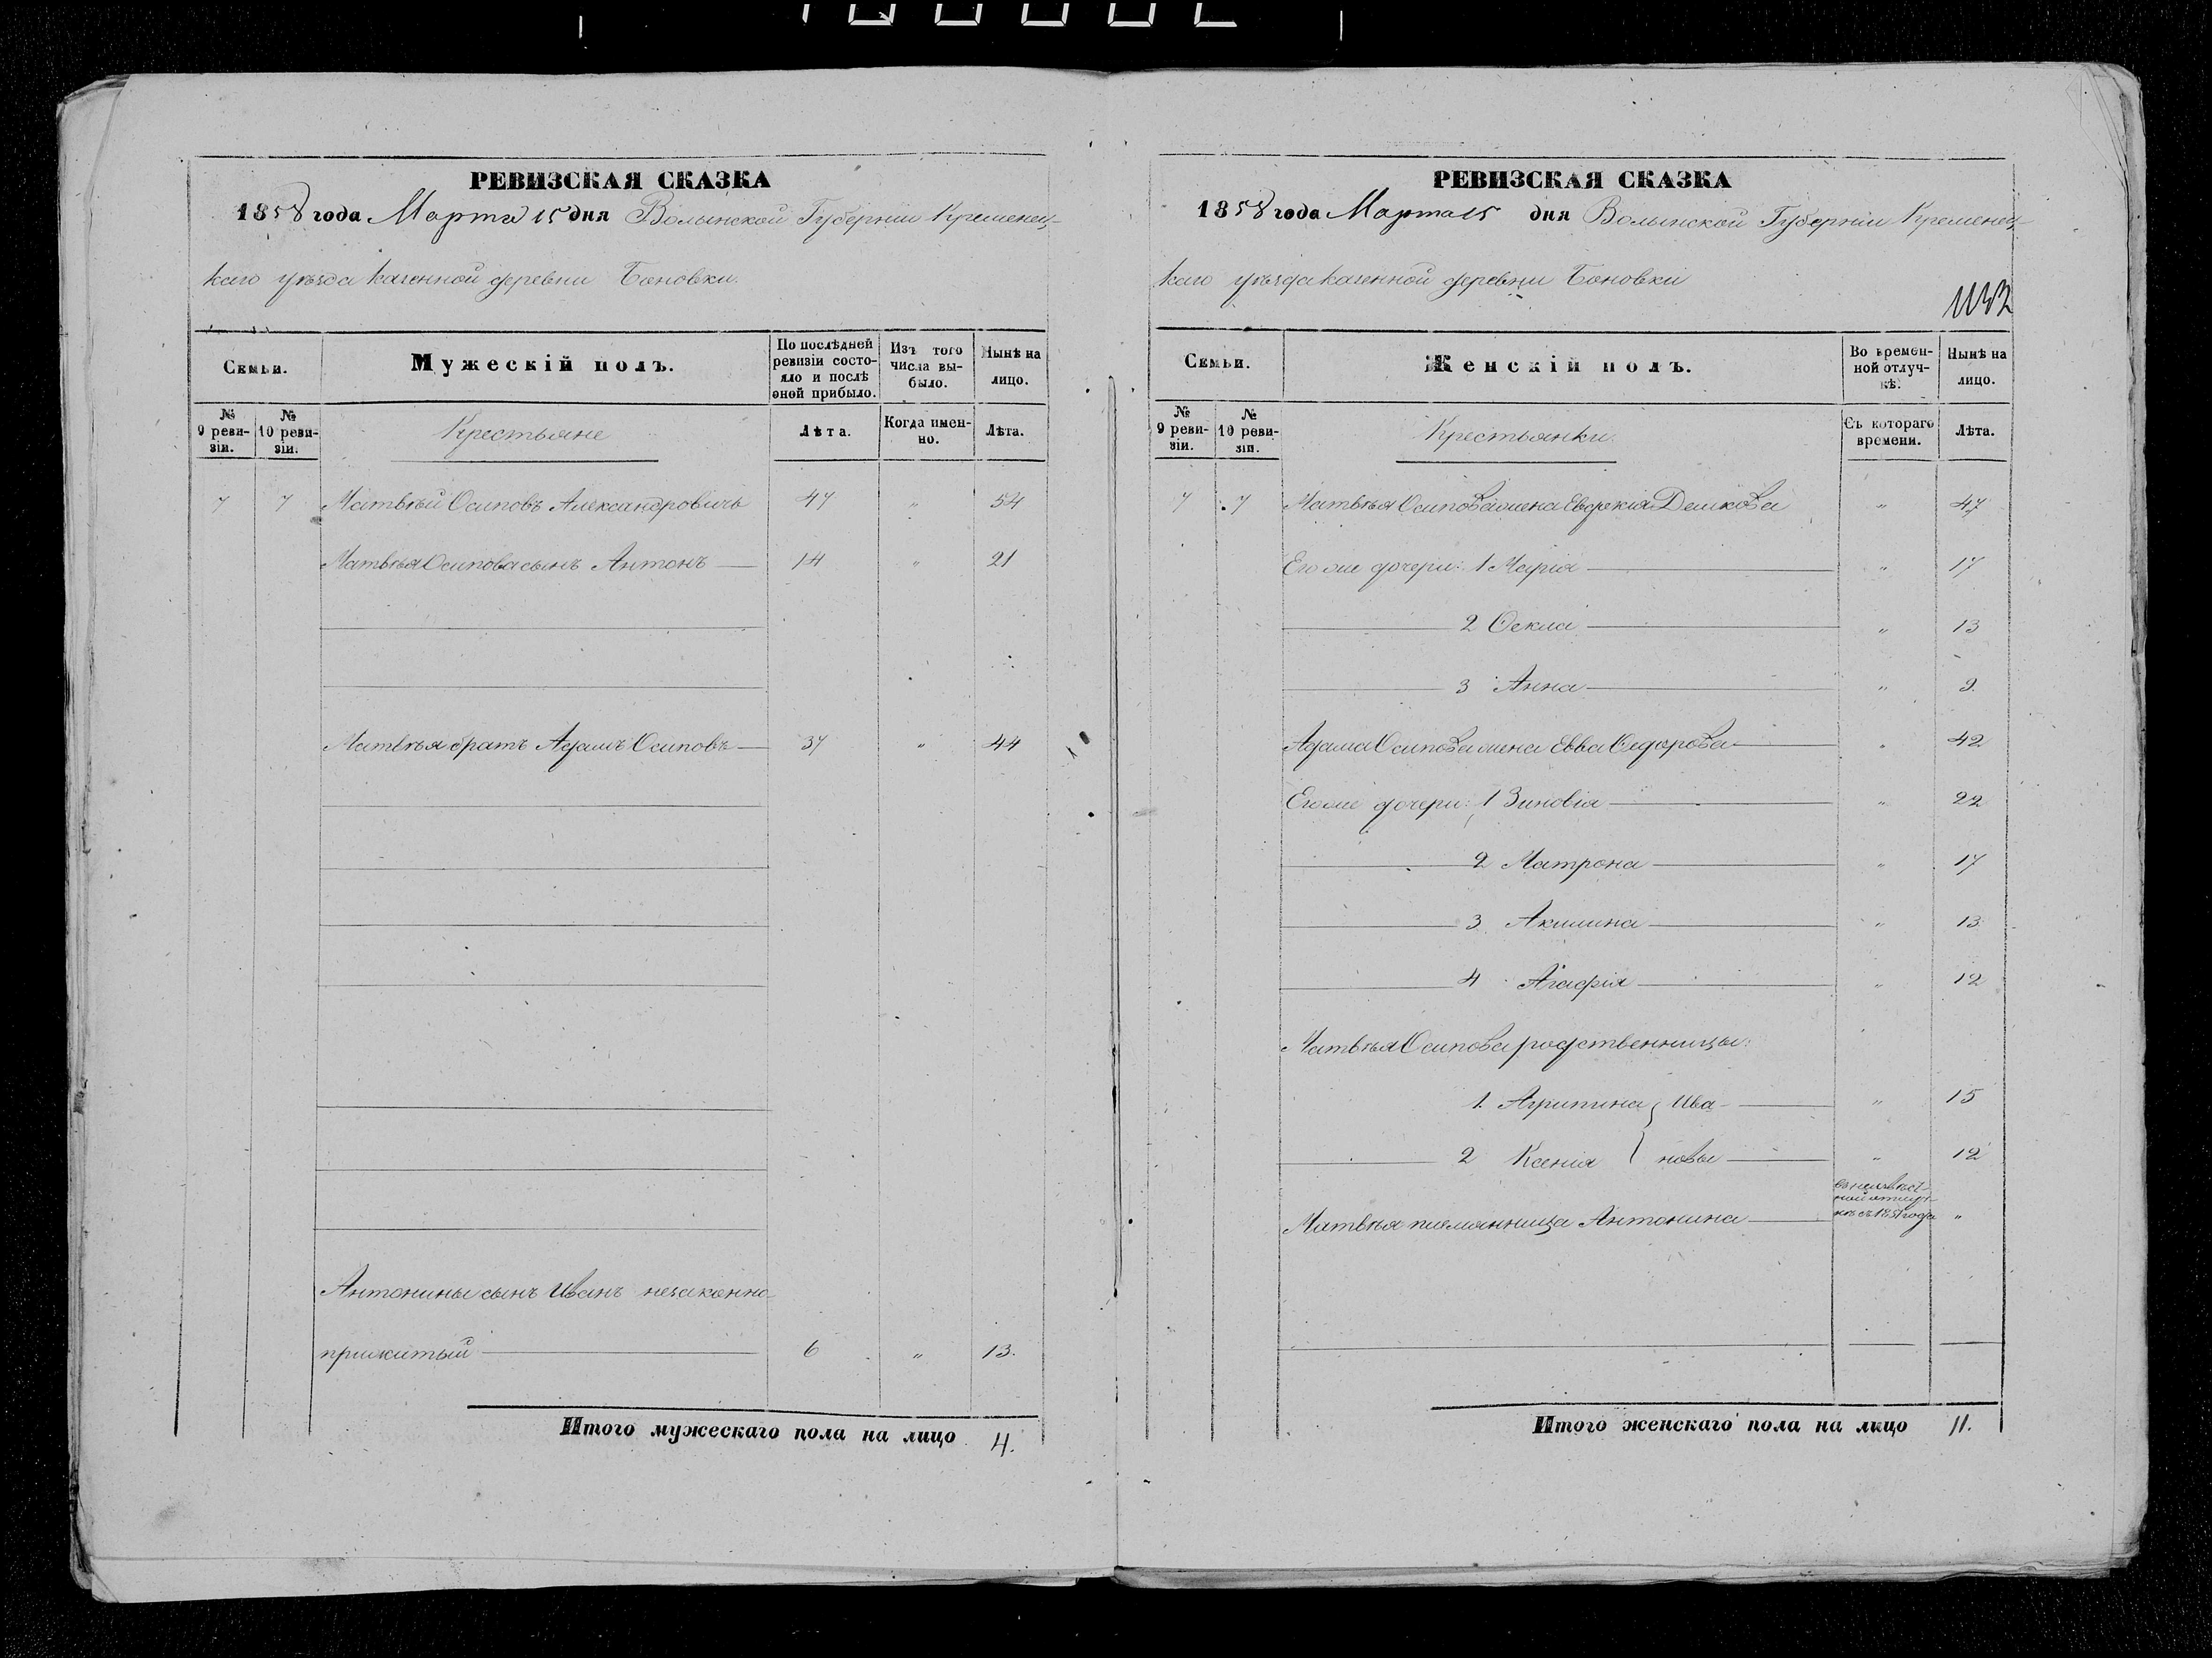 РЕВИЗСКАЯ СКАЗКА
1858 года Марта 15 дня Волынской Губерніи Кременец-
каго уѣзда казенной деревни Боновки.
Семьи.
Мужескій полъ.
По послѣдней ревизіи состо-
яло и послѣ оной прибыло.
Изъ того числа вы-
было.
Нынѣ на лицо.
№ 9 реви-
зіи.
№ 10 реви-
зіи.
Крестьяне
Лѣта.
Когда имен-
но.
Лѣта.
7 7 Матвѣй Осиповъ Александровичъ 47 " 54
Матвѣя Осипова сынъ Антонъ 14 " 21
Матвѣя братъ Адамъ Осиповъ 37 " 44
Антонины сынъ Иванъ незаконно
прижитый 6 " 13.
Итого мужескаго пола на лицо 4.
РЕВИЗСКАЯ СКАЗКА
1858 года Марта 15 дня Волынской Губерніи Кременец-
каго уѣзда казенной деревни Боновки
Семьи.
Женскій полъ.
Во времен-
ной отлуч-
кѣ.
Нынѣ на лицо.
№ 9 реви-
зіи.
№ 10 реви-
зіи.
Крестьянки
Съ котораго времени.
Лѣта.
7 7 Матвѣя Осипова жена Евдокія " 47
Его же дочери: 1 Марія " 17
2 Ѳекла " 13
3 Анна " 9.
Адама Осипова жена Евва Ѳедорова " 42
Его же дочери: 1 Зиновія " 22
2 Матрона " 17
3 Акилина " 13
4 Агафія " 12
Матвѣя Осипова родственницы:
1. Агрипина } Ива- " 15
2 Ксенія } новы " 12
въ неизвѣст-
ной отлуч-
кѣ съ 1851 года
Матвѣя племянница Антонина "
Итого женскаго пола на лицо 11.